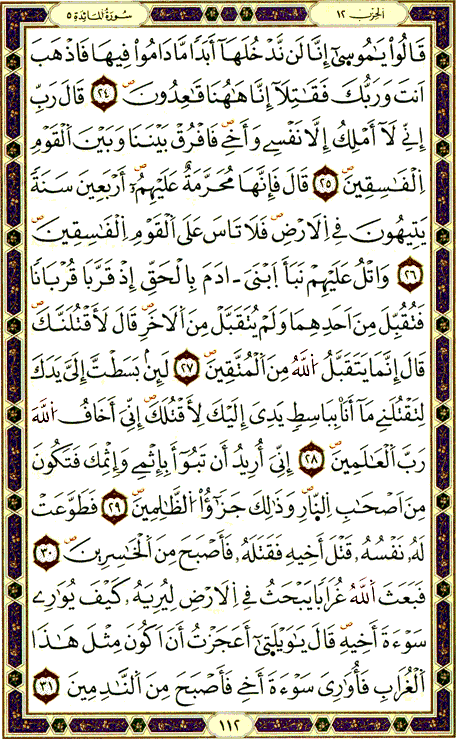 الحزب ١٢
سورة المائدة ٥
قَالُواْ يَٰمُوسَىٰٓ إِنَّا لَن نَّدْخُلَهَآ أَبَدٗا مَّا دَامُواْ فِيهَا فَاذْهَبَ
اَنتَ وَرَبُّكَ فَقَٰتِلَآ إِنَّا هَٰهُنَا قَٰعِدُونَۖ ٢٤ قَالَ رَبِّ
إِنِّے لَآ أَمْلِكُ إِلَّا نَفْسِے وَأَخِےۖ فَافْرُقْ بَيْنَنَا وَبَيْنَ اَلْقَوْمِ
اِلْفَٰسِقِينَۖ ٢٥ قَالَ فَإِنَّهَا مُحَرَّمَةٌ عَلَيْهِمُۥٓ أَرْبَعِينَ سَنَةٗ
يَتِيهُونَ فِے اِلَارْضِۖ فَلَا تَاسَ عَلَى اَلْقَوْمِ اِلْفَٰسِقِينَۖ
٢٦ وَاتْلُ عَلَيْهِمْ نَبَأَ اَبْنَےَ ادَمَ بِالْحَقِّ إِذْ قَرَّبَا قُرْبَانٗا
فَتُقُبِّلَ مِنَ اَحَدِهِمَا وَلَمْ يُتَقَبَّلْ مِنَ اَلَاخَرِۖ قَالَ لَأَقْتُلَنَّكَۖ
قَالَ إِنَّمَا يَتَقَبَّلُ اُللَّهُ مِنَ اَلْمُتَّقِينَۖ ٢٧ لَئِنۢ بَسَطتَّ إِلَيَّ يَدَكَ
لِتَقْتُلَنِے مَآ أَنَا۠ بِبَاسِطٖ يَدِيَ إِلَيْكَ لِأَقْتُلَكَۖ إِنِّيَ أَخَافُ اُللَّهَ
رَبَّ اَلْعَٰلَمِينَۖ ٢٨ إِنِّيَ أُرِيدُ أَن تَبُوٓأَ بِإِثْمِے وَإِثْمِكَ فَتَكُونَ
مِنَ اَصْحَٰبِ اِلنَّارِۖ وَذَٰلِكَ جَزَٰٓؤُاْ اُلظَّٰلِمِينَۖ ٢٩ فَطَوَّعَتْ
لَهُۥ نَفْسُهُۥ قَتْلَ أَخِيهِ فَقَتَلَهُۥ فَأَصْبَحَ مِنَ اَلْخَٰسِرِينَۖ ٣٠
فَبَعَثَ اَللَّهُ غُرَابٗا يَبْحَثُ فِے اِلَارْضِ لِيُرِيَهُۥ كَيْفَ يُوَٰرِے
سَوْءَةَ أَخِيهِۖ قَالَ يَٰوَيْلَتَىٰٓ أَعَجَزْتُ أَنَ اَكُونَ مِثْلَ هَٰذَا
اَلْغُرَابِ فَأُوَٰرِيَ سَوْءَةَ أَخِےۖ فَأَصْبَحَ مِنَ اَلنَّٰدِمِينَۖ ٣١
١١٢